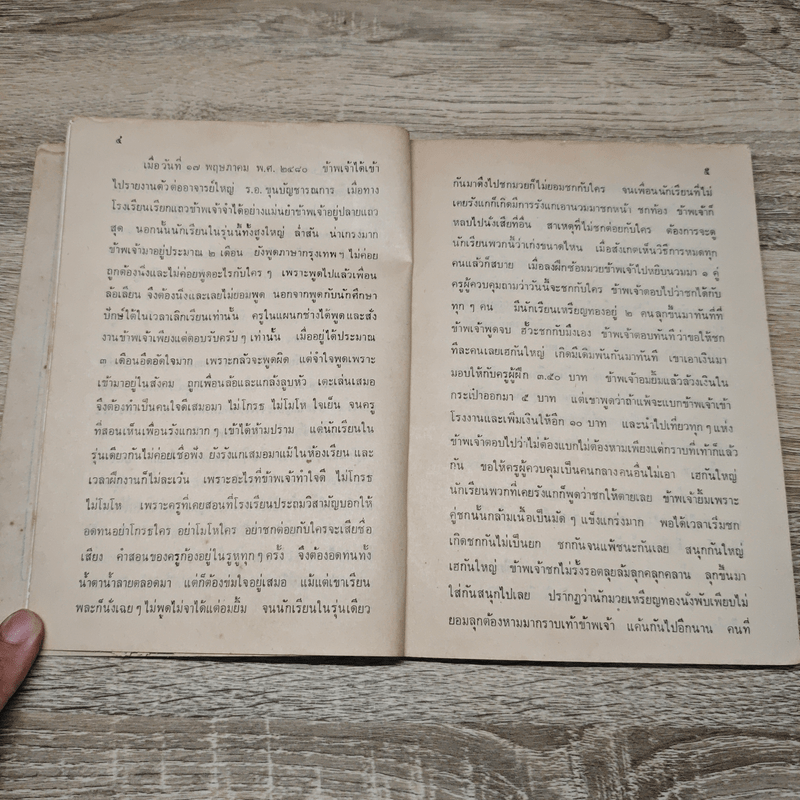 ๔
เมื่อวันที่ ๑๗ พฤษภาคม พ.ศ. ๒๔๘๐ ข้าพเจ้าได้เข้า
ไปรายงานตัวต่ออาจารย์ใหญ่ ร.อ. ขุนบัญชารณการ เมื่อทาง
โรงเรียนเรียกแถวข้าพเจ้าจำได้อย่างแม่นยำข้าพเจ้าอยู่ปลายแถว
สุด นอกนั้นนักเรียนในรุ่นนี้ทั้งสูงใหญ่ ล่ำสัน น่าเกรงมาก
ข้าพเจ้ามาอยู่ประมาณ ๒ เดือน ยังพูดภาษากรุงเทพฯ ไม่ค่อย
ถูกต้องนิ่งและไม่ค่อยพูดอะไรกับใคร ๆ เพราะพูดไปแล้วเพื่อน
ล้อเลียน จึงต้องนิ่งและเลยไม่ยอมพูด นอกจากพูดกับนักศึกษา
ปักษ์ใต้ในเวลาเลิกเรียนเท่านั้น ครูในแผนกช่างได้พูดและสั่ง
งานข้าพเจ้าเพียงแต่ตอบรับครับ ๆ เท่านั้น เมื่ออยู่ได้ประมาณ
๓ เดือนอึดอัดใจมาก เพราะกลัวจะพูดผิด แต่จำใจพูดเพราะ
เข้ามาอยู่ในสังคม ถูกเพื่อนล้อและแกล้งลูบหัว เตะเล่นเสมอ
จึงต้องทำเป็นคนใจดีเสมอมา ไม่โกรธ ไม่โมโห ใจเย็น จนครู
ที่สอนเห็นเพื่อนรังแกมาก ๆ เข้าได้ห้ามปราม แต่นักเรียนใน
รุ่นเดียวกันไม่ค่อยเชื่อฟัง ยังรังแกเสมอมาแม้ในห้องเรียน และ
เวลาฝึกงานก็ไม่ละเว้น เพราะอะไรที่ข้าพเจ้าทำใจดี ไม่โกรธ
ไม่โมโห เพราะครูที่เคยสอนที่โรงเรียนประถมวิสามัญบอกให้
อดทนอย่าโกรธใคร อย่าโมโหใคร อย่าชกต่อยกับใครจะเสียชื่อ
เสียง คำสอนของครูก้องอยู่ในรูหูทุก ๆ ครั้ง จึงต้องอดทนทั้ง
น้ำตาน้ำลายตลอดมา แต่ก็ต้องข่มใจอยู่เสมอ แม้แต่เขาเรียน
พละก็นั่งเฉย ๆ ไม่พูดไม่จาได้แต่อมยิ้ม จนนักเรียนในรุ่นเดียว
๕
กันมาดึงไปชกมวยก็ไม่ยอมชกกับใคร จนเพื่อนนักเรียนที่ไม่
เคยรังแกก็เกิดมีการรังแกเอานวมมาชกหน้า ชกท้อง ข้าพเจ้าก็
หลบไปนั่งเสียที่อื่น สาเหตุที่ไม่ชกต่อยกับใคร ต้องการจะดู
นักเรียนพวกนี้ว่าเก่งขนาดไหน เมื่อสังเกตเห็นวิธีการหมดทุก
คนแล้วก็สบาย เมื่อลงฝึกซ้อมมวยข้าพเจ้าไปหยิบนวมมา ๑ คู่
ครูผู้ควบคุมถามว่าวันนี้จะชกกับใคร ข้าพเจ้าตอบไปว่าชกได้กับ
ทุก ๆ คน มีนักเรียนเหรียญทองอยู่ ๒ คนลุกขึ้นมาทันทีที่
ข้าพเจ้าพูดจบ ฮั้วะชกกับมึงเอง ข้าพเจ้าตอบทันทีว่าขอให้ชก
ทีละคนเลยเฮกันใหญ่ เกิดมีเดิมพันกันมาทันที เขาเอาเงินมา
มอบให้กับครูผู้ฝึก ๓.๕๐ บาท ข้าพเจ้าอมยิ้มแล้วล้วงเงินใน
กระเป๋าออกมา ๕ บาท แต่เขาพูดว่าถ้าแพ้จะแบกข้าพเจ้าเข้า
โรงงานและเพิ่มเงินให้อีก ๑๐ บาท และนำไปเที่ยวทุก ๆ แห่ง
ข้าพเจ้าตอบไปว่าไม่ต้องแบกไม่ต้องหามเพียงแต่กราบที่เท้าก็แล้ว
กัน ขอให้ครูผู้ควบคุมเป็นคนกลางคนอื่นไม่เอา เฮกันใหญ่
นักเรียนพวกที่เคยรังแกก็พูดว่าชกให้ตายเลย ข้าพเจ้ายิ้มเพราะ
คู่ชกนั้นกล้ามเนื้อเป็นมัด ๆ แข็งแกร่งมาก พอได้เวลาเริ่มชก
เกิดชกกันไม่เป็นยก ชกกันจนแพ้ชนะกันเลย สนุกกันใหญ่
เฮกันใหญ่ ข้าพเจ้าชกไม่รั้งรอตลุยล้มลุกคลุกคลาน ลุกขึ้นมา
ใส่กันสนุกไปเลย ปรากฏว่านักมวยเหรียญทองนั่งพับเพียบไม่
ยอมลุกต้องหามมากราบเท้าข้าพเจ้า แค้นกันไปอีกนาน คนที่